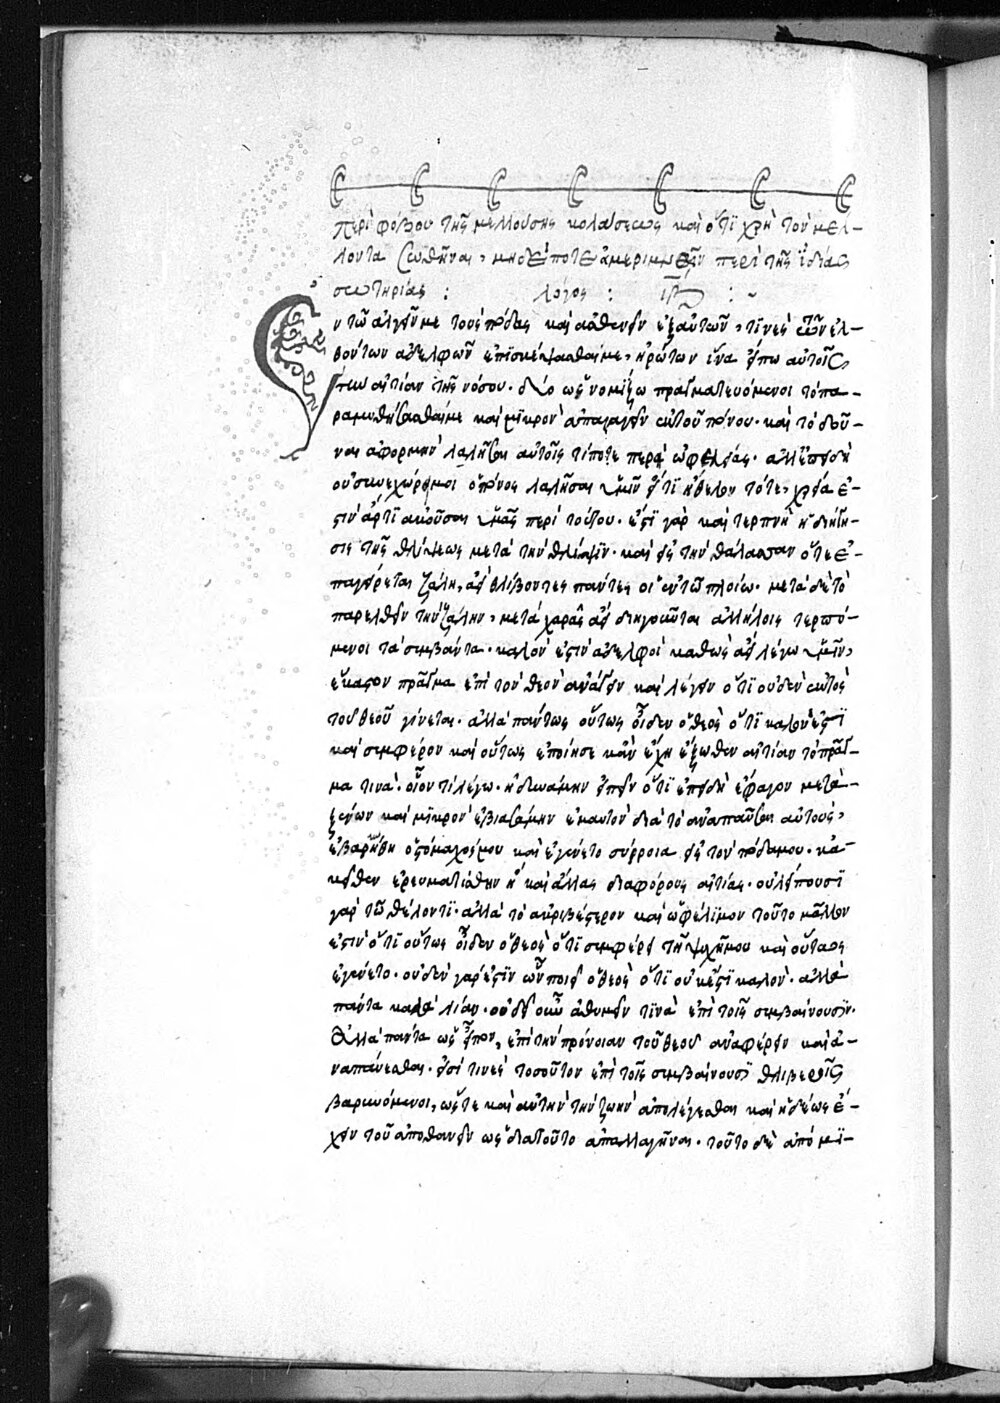 περὶ φόβου τῆς μελλούσης κολάσεως καὶ ὅτι χρὴ τὸν μέλ-
λοντα σωθῆναι, μηδέποτε ἀμεριμνεῖν περὶ τῆς ἰδίας
σωτηρίας : λόγος : ιβ : ~
Ἐν τῷ ἀλγεῖν με τοὺς πόδας καὶ ἀσθενεῖν ἐξ αὐτῶν, τινὲς τῶν ἐλ-
θόντων ἀδελφῶν ἐπισκέψασθαί με, ἠρώτων ἵνα εἴπω αὐτοῖς
τὴν αἰτίαν τῆς νόσου· δύο ὡς νομίζω πραγματευόμενοι τὸ πα-
ραμυθήσασθαί με καὶ μικρὸν ἀπαγαγεῖν ἐκ τοῦ πόνου· καὶ τὸ δοῦ-
ναι ἀφορμὴν λαλῆσαι αὐτοῖς τίποτε περὶ ὠφελείας· ἀλλ' ἐπειδὴ
οὐ συνεχώρει μοι ὁ πόνος λαλῆσαι ὑμῖν ὅτι ἤθελον τότε, χρεία ἐ-
στὶν ἄρτι ἀκοῦσαι ὑμᾶς περὶ τούτου· ἔστι γὰρ καὶ τερπνὴ ἡ διήγη-
σις τῆς θλίψεως μετὰ τὴν θλίψιν· καὶ εἰς τὴν θάλασσαν ὅτε ἐ-
παγείρεται ζάλη, ἀεὶ θλίβονται πάντες οἱ ἐν τῷ πλοίῳ· μετὰ δὲ τὸ
παρελθεῖν τὴν ζάλην, μετὰ χαρᾶς ἀεὶ διηγοῦνται ἀλλήλοις τερπό-
μενοι τὰ συμβάντα· καλόν ἐστιν ἀδελφοὶ καθὼς ἀεὶ λέγω ὑμῖν,
ἕκαστον πρᾶγμα ἐπὶ τὸν θεὸν ἀνάγειν καὶ λέγειν ὅτι οὐδὲν ἐκτὸς
τοῦ θεοῦ γίνεται· ἀλλὰ πάντως οὕτως οἶδεν ὁ θεὸς ὅτι καλόν ἐστι
καὶ συμφέρον καὶ οὕτως ἐποίησε κἂν ἔχῃ ἔξωθεν αἰτίαν τὸ πρᾶγ-
μα τινά· οἷον τί λέγω· ἠδυνάμην εἰπεῖν ὅτι ἐπειδὴ ἔφαγον μετὰ
ξένων καὶ μικρὸν ἐβιασάμην ἐμαυτὸν διὰ τὸ ἀναπαῦσαι αὐτούς,
ἐβαρήθη ὁ στόμαχός μου καὶ ἐγένετο σύρροια εἰς τὸν πόδα μου· κἀ-
κεῖθεν ἐρευματίσθην ἢ καὶ ἄλλας διαφόρους αἰτίας· οὐ λείπουσι
γὰρ τῷ θέλοντι· ἀλλὰ τὸ ἀκριβέστερον καὶ ὠφέλιμον τοῦτο μᾶλλον
ἐστὶν ὅτι οὕτως οἶδεν ὁ θεὸς ὅτι συμφέρει τῇ ψυχῇ μου καὶ οὕτως
ἐγένετο· οὐδὲν γάρ ἐστιν ὧν ποιεῖ ὁ θεὸς ὅτι οὐκ ἔστι καλόν· ἀλλὰ
πάντα καλὰ λίαν· οὐ δεῖ οὖν ἀθυμεῖν τινὰ ἐπὶ τοῖς συμβαίνουσιν·
Ἀλλὰ πάντα ὡς εἶπον, ἐπὶ τὴν πρόνοιαν τοῦ θεοῦ ἀναφέρειν καὶ ἀ-
ναπαύεσθαι· εἰσί τινες τοσοῦτον ἐπὶ τοῖς συμβαίνουσι θλιβεροῖς
βαρυνόμενοι, ὥστε καὶ αὐτὴν τὴν ζωὴν ἀπολέγεσθαι καὶ ἡδέως ἔ-
χειν τοῦ ἀποθανεῖν ὡς διὰ τοῦτο ἀπαλλαγῆναι· τοῦτο δὲ ἀπὸ μι-